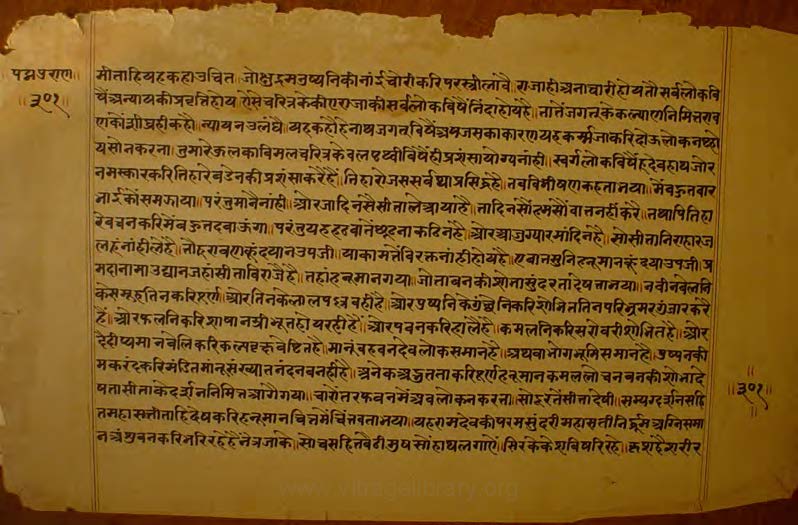 पद्मपुराण॥
॥३०१॥
मीताहियहकहाउचित॥जोक्षुद्रमनुष्यनिकीनांईचोरीकरिपरस्त्रीलावै॥राजाहीअनाचारीहोयतौसर्वलोकवि
षैंअन्यायकीप्रवृत्तिहोय ऐसेचरित्रकेकीएराजाकीसर्वलोकविषैंनिंदाहोयहै॥तातैंजगत्केकल्याणनिमित्तराव
णकोंशीघ्रहीकहौ॥न्यायनउलंघै॥यहकहौहेनाथजगतविषैंअपजसकाकारणयहकर्म्मजाकरिदोऊलोकनष्टहो
यसोनकरना॥तुमारेकुलकाविमलचरित्रकेवलपृथ्वीविषैंहीप्रशंसायोग्यनांही॥स्वर्गलोकविषैंहूदेवहाथजोर
नमस्कारकरितिहारेबडेनकीप्रशंसाकरैहैं॥तिहाराजससर्वथाप्रसिद्धहै॥तबविभीषणकहताभया॥मैंबहुतवार
भाईकोंसमझाया॥परंतुमानैनांही॥औरजादिनसेसीतालेआयाहै॥तादिनसौंहमसोंबातनहींकरै॥तथापितिहा
रेबचनकरिमैंबहुतदबाऊंगा॥परंतुयहहठवातैंछूटनाकठिनहै॥औरआजुग्यारमांदिनहै॥सोसीतानिराहारज
लहूनांहीलेहै॥तौहूरावणकूंदयानउपजी॥याकामतैंविरक्तनांहीहोयहै॥एबातसुनिहनूमानकूंदयाउपजी॥प्र
मदानामाउद्यानजहांसीताविराजैहै॥तहांहनूमानगया॥तावनकीशोभासुंदरतादेषताभया॥नवीनबेलनि
केसमूहतिनकरिपूर्ण॥औरतिनकेलालपल्लवहीहै॥औरपुष्पनिकेगुच्छेनिकरिशोभिततिनपरिभ्रमरगुंजारकरै
हैं॥औरफलनिकरिशाषानम्रीभूतहोयरहीहैं॥औरपवनकरिहालैहै॥कमलनिकरिसरोवरीशोभितहै॥और
दैदीप्यमानबेलिकरिकल्पवृक्षवेष्टितहै॥मानूंवहबनदेवलोकसमानहै॥अथवाभोगभूमिसमानहै॥पुष्पनकी
मकरंदकरिमंडितमानूंसाक्षातनंदनवनहीहै॥अनेकअद्भुतताकरिपूर्णहनूमानकमललोचनवनकीशोभादे
षतासीताकेदर्शननिमित्तआगैगया॥चारोंतरफवनमेंअवलोकनकरना॥सोदूरतैंसीतादेषी॥सम्यग्दर्शनसहि
तमहासतीताहिदेषकरिहनूमानचित्तमेंचिंतवताभया॥यहरामदेवकीपरमसुंदरीमहासतीनिर्द्धूमअग्निसमा
नअंसुवनकरिभरिरहेहैंनेत्रजाके॥सोचसहितबेठीमुषसोंहाथलगाऐं॥सिरकेकेशबिषरिरहे॥कृशहैशरीर
॥३०१॥
www.vitragelibrary.org